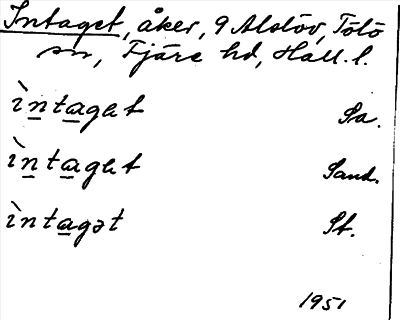 Intaget, åker, 9 Alslöv, Tölö
sn, Fjäre hd, Hall. l.
ìntagət Sa.
ìntagət Sand.
ìntagət St.
1951